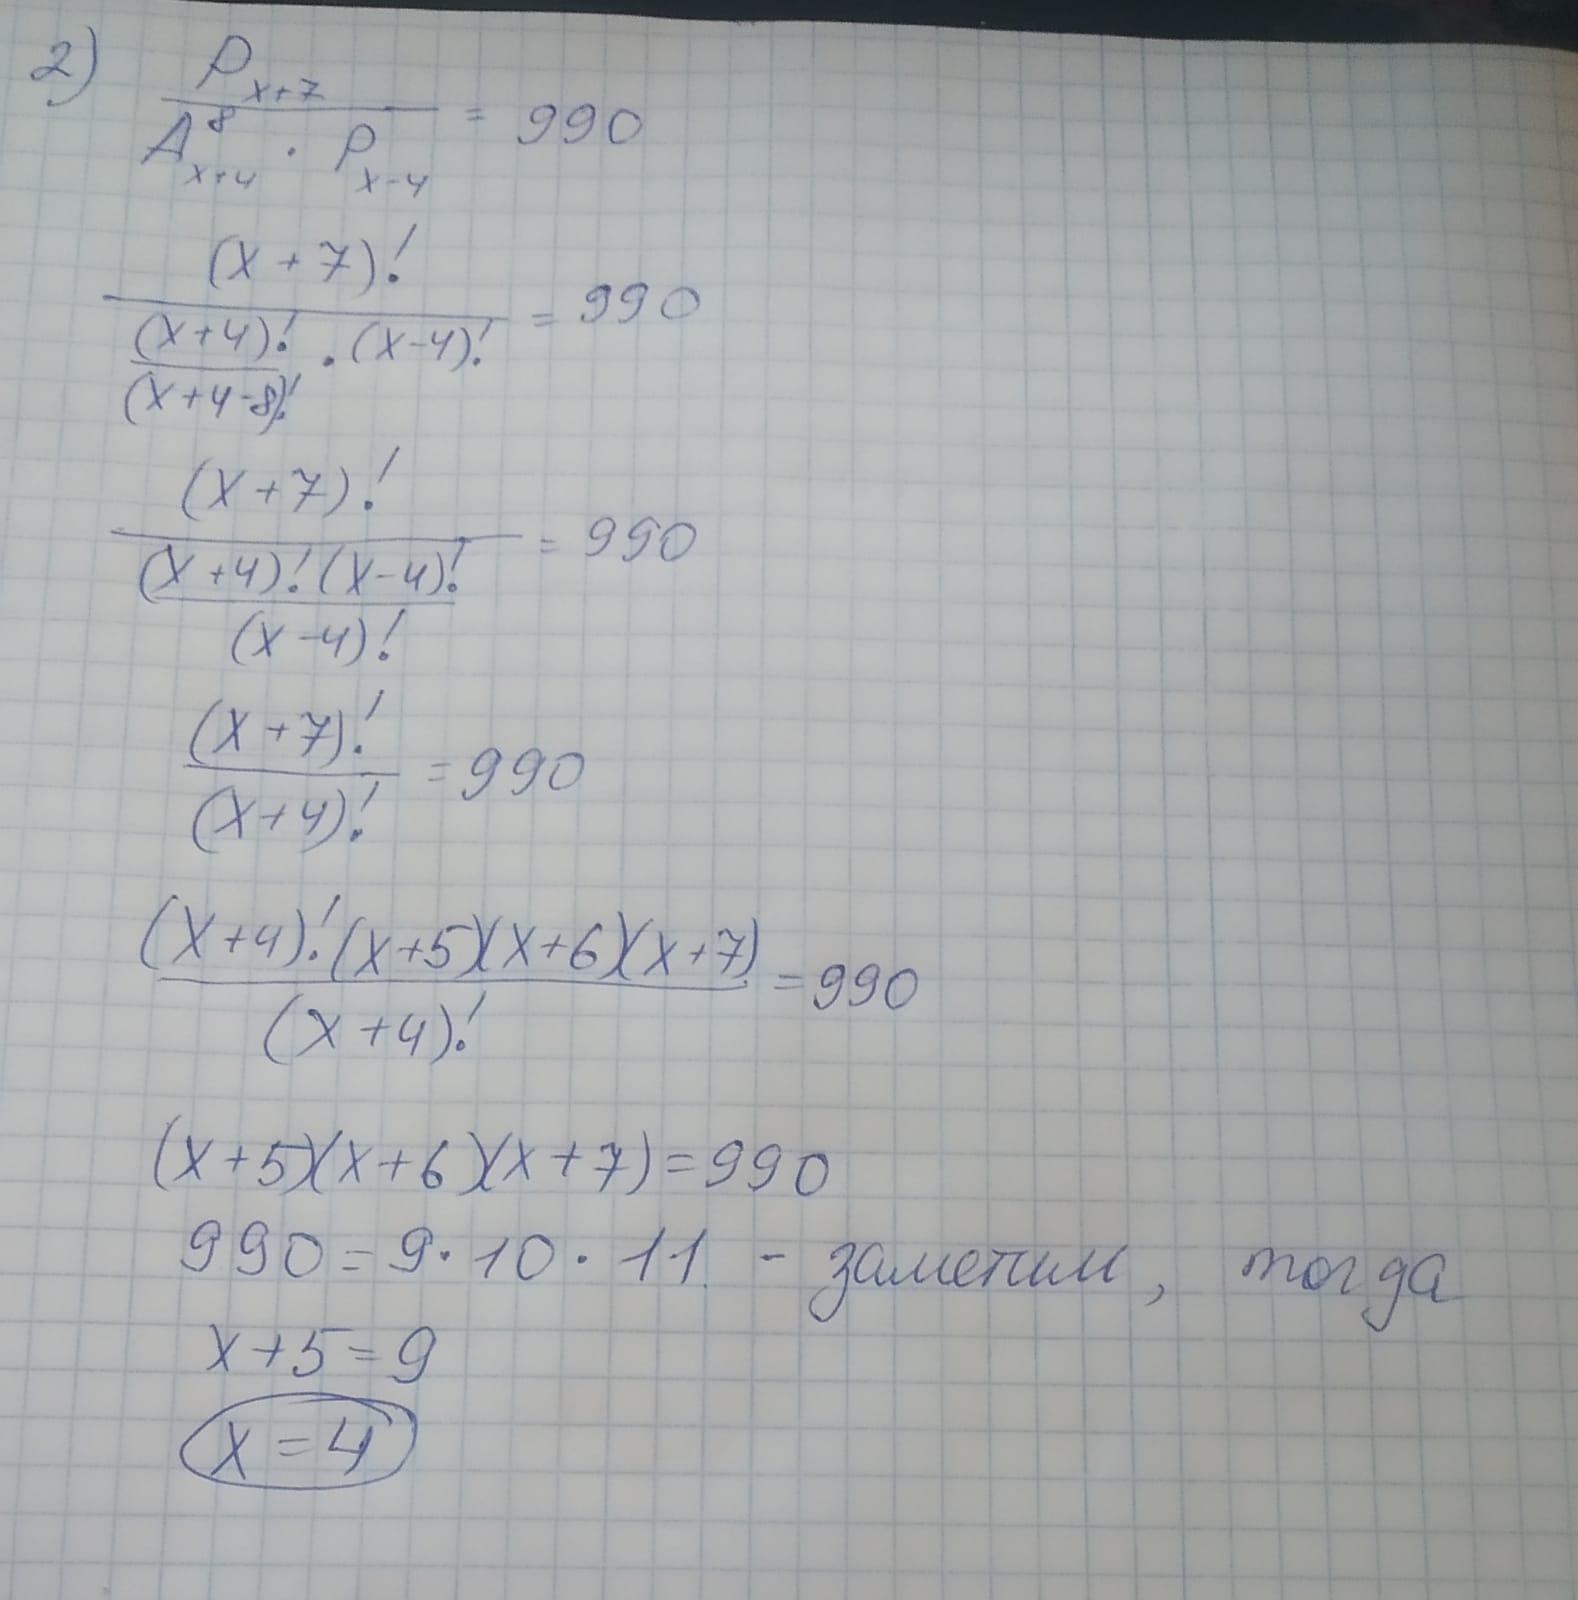 2) P_{x+7} / (A^8_{x+4} · P_{x-4}) = 990
(x+7)! / ((x+4)!/(x+4-8)! · (x-4)!) = 990
(x+7)! / ((x+4)!(x-4)!/(x-4)!) = 990
(x+7)! / (x+4)! = 990
(x+4)!(x+5)(x+6)(x+7) / (x+4)! = 990
(x+5)(x+6)(x+7)=990
990=9·10·11 - заметим, тогда
x+5=9
x=4